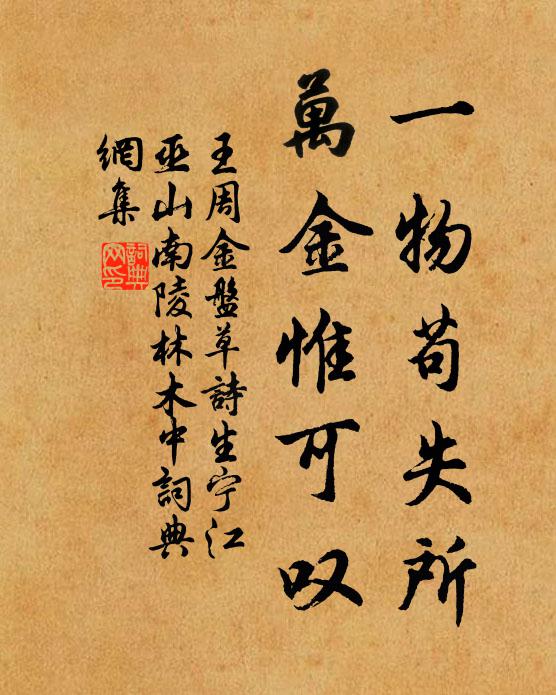 一物苟失所
萬金惟可叹
王周金盤草詩生宁江
巫山南陵林木中詞典
網集
詞典
网印